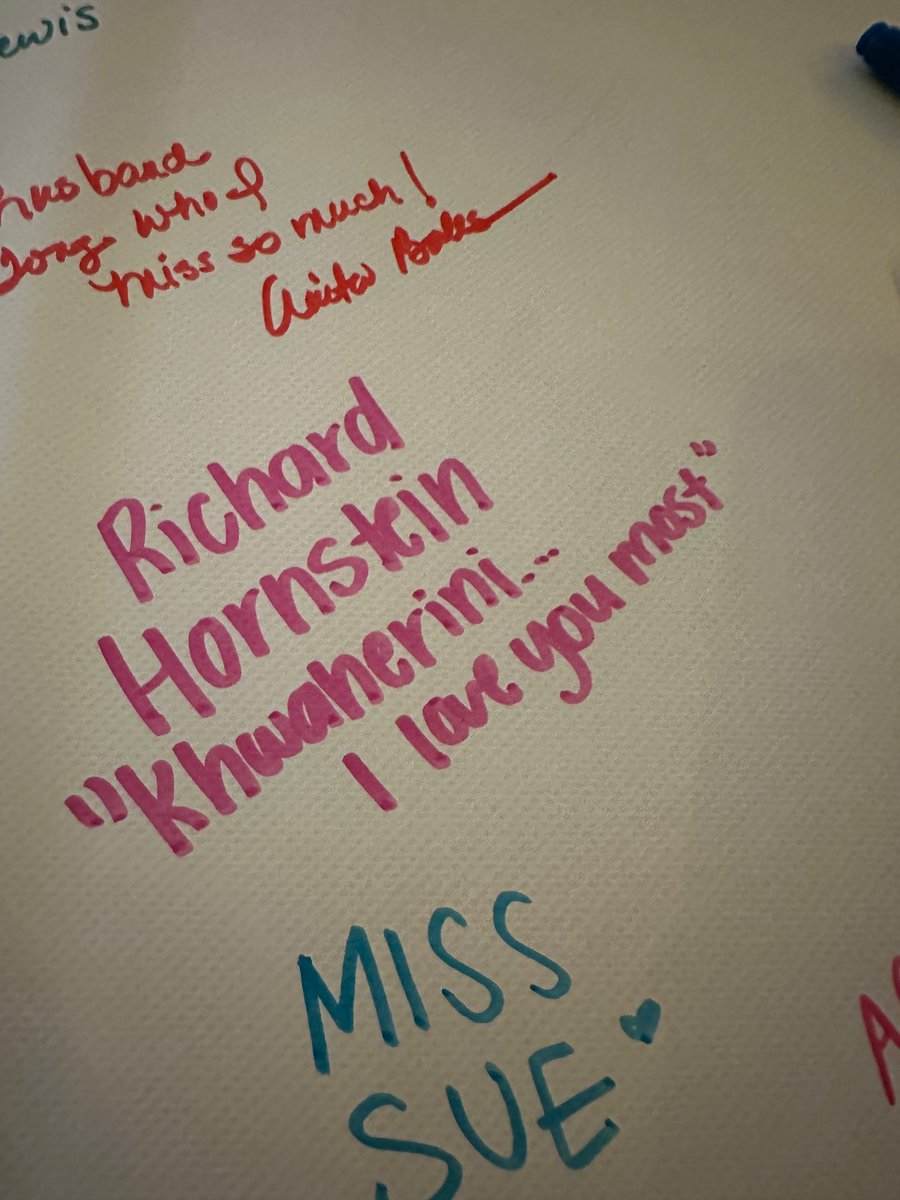 ewis
husband
who I
miss so much!
Richard
Hornstein
"Khwaherini...
I love you most"
MISS
SUE
A